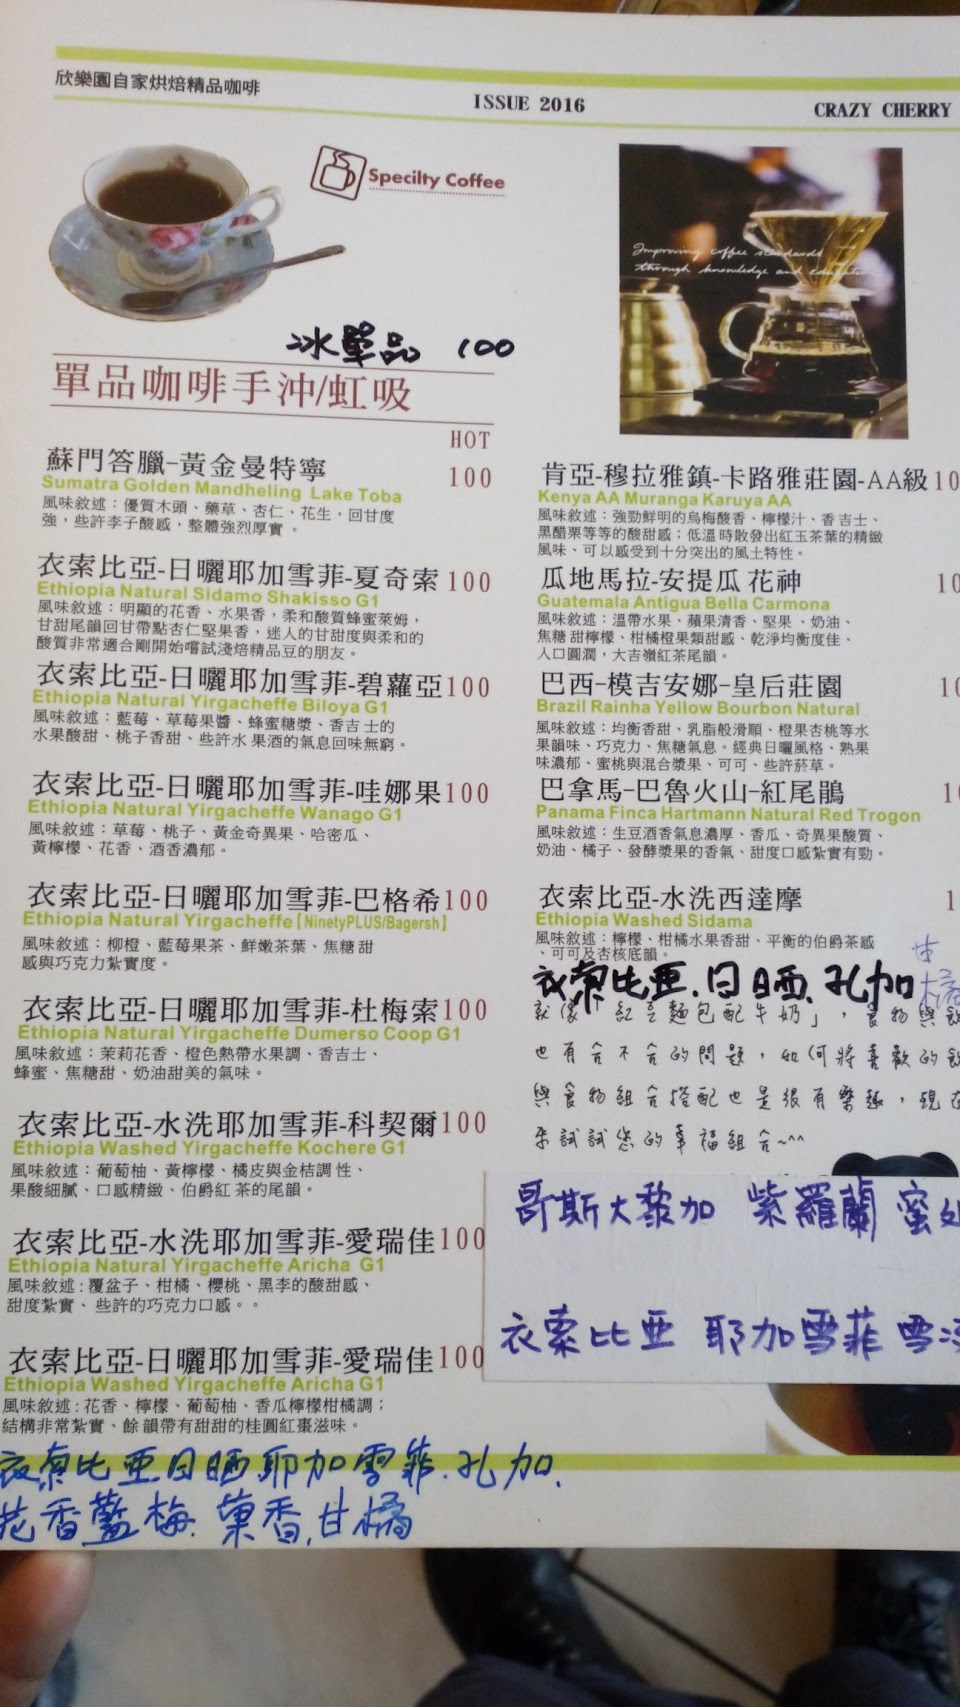 欣樂園自家烘焙精品咖啡
ISSUE 2016
CRAZY CHERRY
Specilty Coffee
Improving coffee standards
through knowledge and education
冰單品 100
單品咖啡手沖/虹吸
HOT
蘇門答臘-黃金曼特寧 100
Sumatra Golden Mandheling Lake Toba
風味敘述：優質木頭、藥草、杏仁、花生，回甘度
強，些許李子酸感，整體強烈厚實。
衣索比亞-日曬耶加雪菲-夏奇索 100
Ethiopia Natural Sidamo Shakisso G1
風味敘述：明顯的花香、水果香，柔和酸質蜂蜜萊姆，
甘甜尾韻回甘帶點杏仁堅果香，迷人的甘甜度與柔和的
酸質非常適合剛開始嚐試淺焙精品豆的朋友。
衣索比亞-日曬耶加雪菲-碧蘿亞 100
Ethiopia Natural Yirgacheffe Biloya G1
風味敘述：藍莓、草莓果醬、蜂蜜糖漿、香吉士的
水果酸甜、桃子香甜、些許水果酒的氣息回味無窮。
衣索比亞-日曬耶加雪菲-哇娜果 100
Ethiopia Natural Yirgacheffe Wanago G1
風味敘述：草莓、桃子、黃金奇異果、哈密瓜、
黃檸檬、花香、酒香濃郁。
衣索比亞-日曬耶加雪菲-巴格希 100
Ethiopia Natural Yirgacheffe【NinetyPLUS/Bagersh】
風味敘述：柳橙、藍莓果茶、鮮嫩茶葉、焦糖甜
感與巧克力紮實度。
衣索比亞-日曬耶加雪菲-杜梅索 100
Ethiopia Natural Yirgacheffe Dumerso Coop G1
風味敘述：茉莉花香、橙色熱帶水果調、香吉士、
蜂蜜、焦糖甜、奶油甜美的氣味。
衣索比亞-水洗耶加雪菲-科契爾 100
Ethiopia Washed Yirgacheffe Kochere G1
風味敘述：葡萄柚、黃檸檬、橘皮與金桔調性、
果酸細膩、口感精緻、伯爵紅茶的尾韻。
衣索比亞-水洗耶加雪菲-愛瑞佳 100
Ethiopia Natural Yirgacheffe Aricha G1
風味敘述：覆盆子、柑橘、櫻桃、黑李的酸甜感、
甜度紮實、些許的巧克力口感。。
衣索比亞-日曬耶加雪菲-愛瑞佳 100
Ethiopia Washed Yirgacheffe Aricha G1
風味敘述：花香、檸檬、葡萄柚、香瓜檸檬柑橘調；
結構非常紮實、餘韻帶有甜甜的桂圓紅棗滋味。
衣索比亞日晒耶加雪菲.孔加.
花香藍梅.菓香.甘橘
肯亞-穆拉雅鎮-卡路雅莊園-AA級 10
Kenya AA Muranga Karuya AA
風味敘述：強勁鮮明的烏梅酸香、檸檬汁、香吉士、
黑醋栗等等的酸甜感；低溫時散發出紅玉茶葉的精緻
風味、可以感受到十分突出的風土特性。
瓜地馬拉-安提瓜花神 10
Guatemala Antigua Bella Carmona
風味敘述：溫帶水果、蘋果清香、堅果、奶油、
焦糖甜檸檬、柑橘橙果類甜感、乾淨均衡度佳、
入口圓潤，大吉嶺紅茶尾韻。
巴西-模吉安娜-皇后莊園 10
Brazil Rainha Yellow Bourbon Natural
風味敘述：均衡香甜、乳脂般滑順、橙果杏桃等水
果韻味、巧克力、焦糖氣息。經典日曬風格、熟果
味濃郁、蜜桃與混合漿果、可可、些許菸草。
巴拿馬-巴魯火山-紅尾鵑 10
Panama Finca Hartmann Natural Red Trogon
風味敘述：生豆酒香氣息濃厚、香瓜、奇異果酸質、
奶油、橘子、發酵漿果的香氣、甜度口感紮實有勁。
衣索比亞-水洗西達摩 1
Ethiopia Washed Sidama
風味敘述：檸檬、柑橘水果香甜、平衡的伯爵茶感
、可可及杏核底韻。
衣索比亞.日晒.孔加 甘橘
就像「紅豆麵包配牛奶」，食物與飲
也有合不合的問題，如何將喜歡的飲
與食物組合搭配也是很有樂趣，現在
來試試您的幸福組合~^^
哥斯大黎加 紫羅蘭 蜜處
衣索比亞 耶加雪菲 雪冽